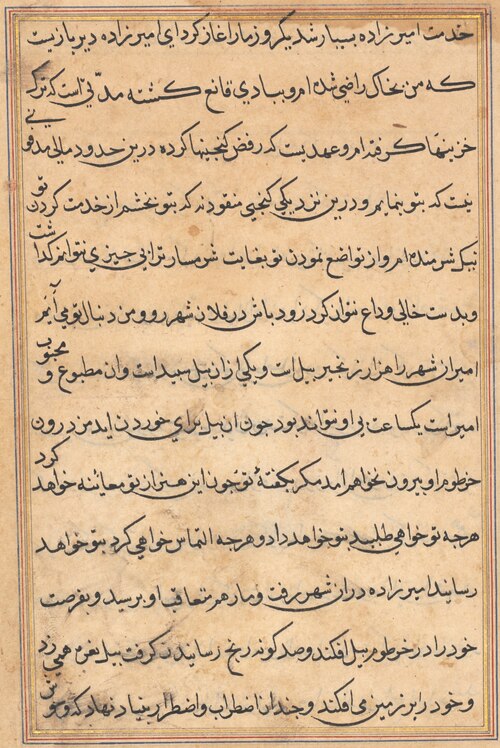 خدمت امیرزاده بسیار شد یکروز مار اغاز کرد ای امیرزاده دیر بازیست
که من بخاک راضی شده ام و ببادی قانع کشته مدتی است که ترک
خزینها کرفته ام و عهدیست که رفض کنجینها کرده درین حدود مالی مدفون
نیست که بتو بنمایم و درین نزدیکی کنجی منقود نه که بتو بخشم از خدمت کردن تو
نیک شرمنده ام و از تواضع نمودن تو بغایت شرمسار ترا بی چیزی نتوانم کذاشت
و بدست خالی وداع نتوان کرد زود باش در فلان شهر رو و من دنبال تو می آیم
امیر ان شهر را هزار زنجیر بیل است و یکی ازان بیل سبید است وان مطبوع و محبوب
امیر است یکساعت بی او نتواند بود جون ان بیل برای خوردن اید من درون
خرطوم او بیرون نخواهم امد مکر بکفتهٔ تو جون این هنر از تو معاینه خواهد کرد
هرجه تو خواهی طلبید بتو خواهد داد و هرجه التماس خواهی کرد بتو خواهد
رسانید امیرزاده دران شهر برفت و مار هم متعاقب او برسید و بفرصت
خود را در خرطوم بیل افکند و صد کونه رنج رسانیدن کرفت بیل نعره همی زد
و خود را بر زمین می افکند و جندان اضطراب و اضطرار بنیاد نهاد که